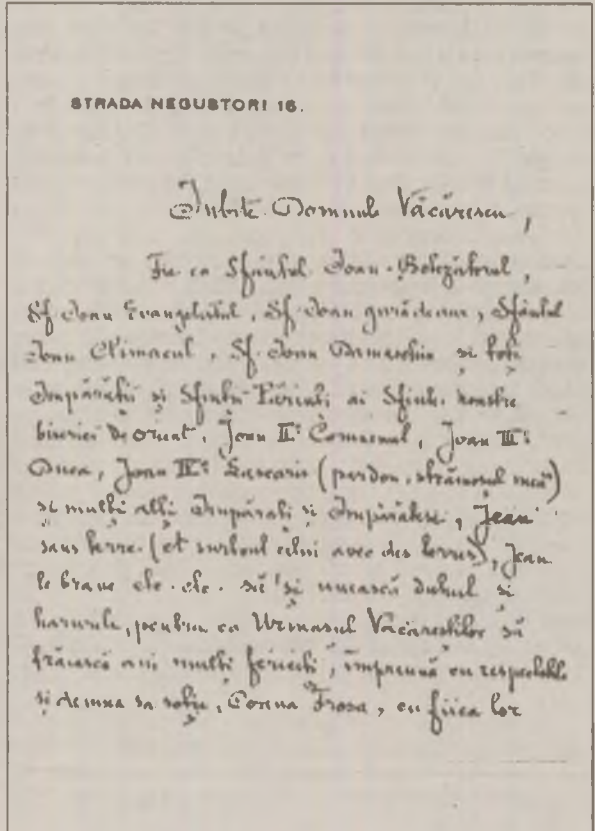 STRADA NEGUSTORI 16.
Iubite Domnule Văcărescu,
Fie ca Sfântul Ioan-Botezătorul,
Sf Ioan Evangelistul, Sf. Ioan gură de aur, Sfântul
Ioan Climacul, Sf. Ioan Damaschin și toți
Împărații și Sfinții Părinți ai Sfintei noastre
biserici de orient, Joan II: Comnenul, Joan III:
Duca, Joan IV: Lascaris (pardon, strămoșul meu)
și mulți alți Împărați și Împărătese, Jean
sans terre (et surtout celui avec des terres), Jean
le brave etc. etc. să'și unească duhul și
harurile, pentru ca Urmașul Văcăreștilor să
trăiască ani mulți fericiți, împreună cu respectabila
și demna sa soție, Cocona Frosa, cu fiica lor